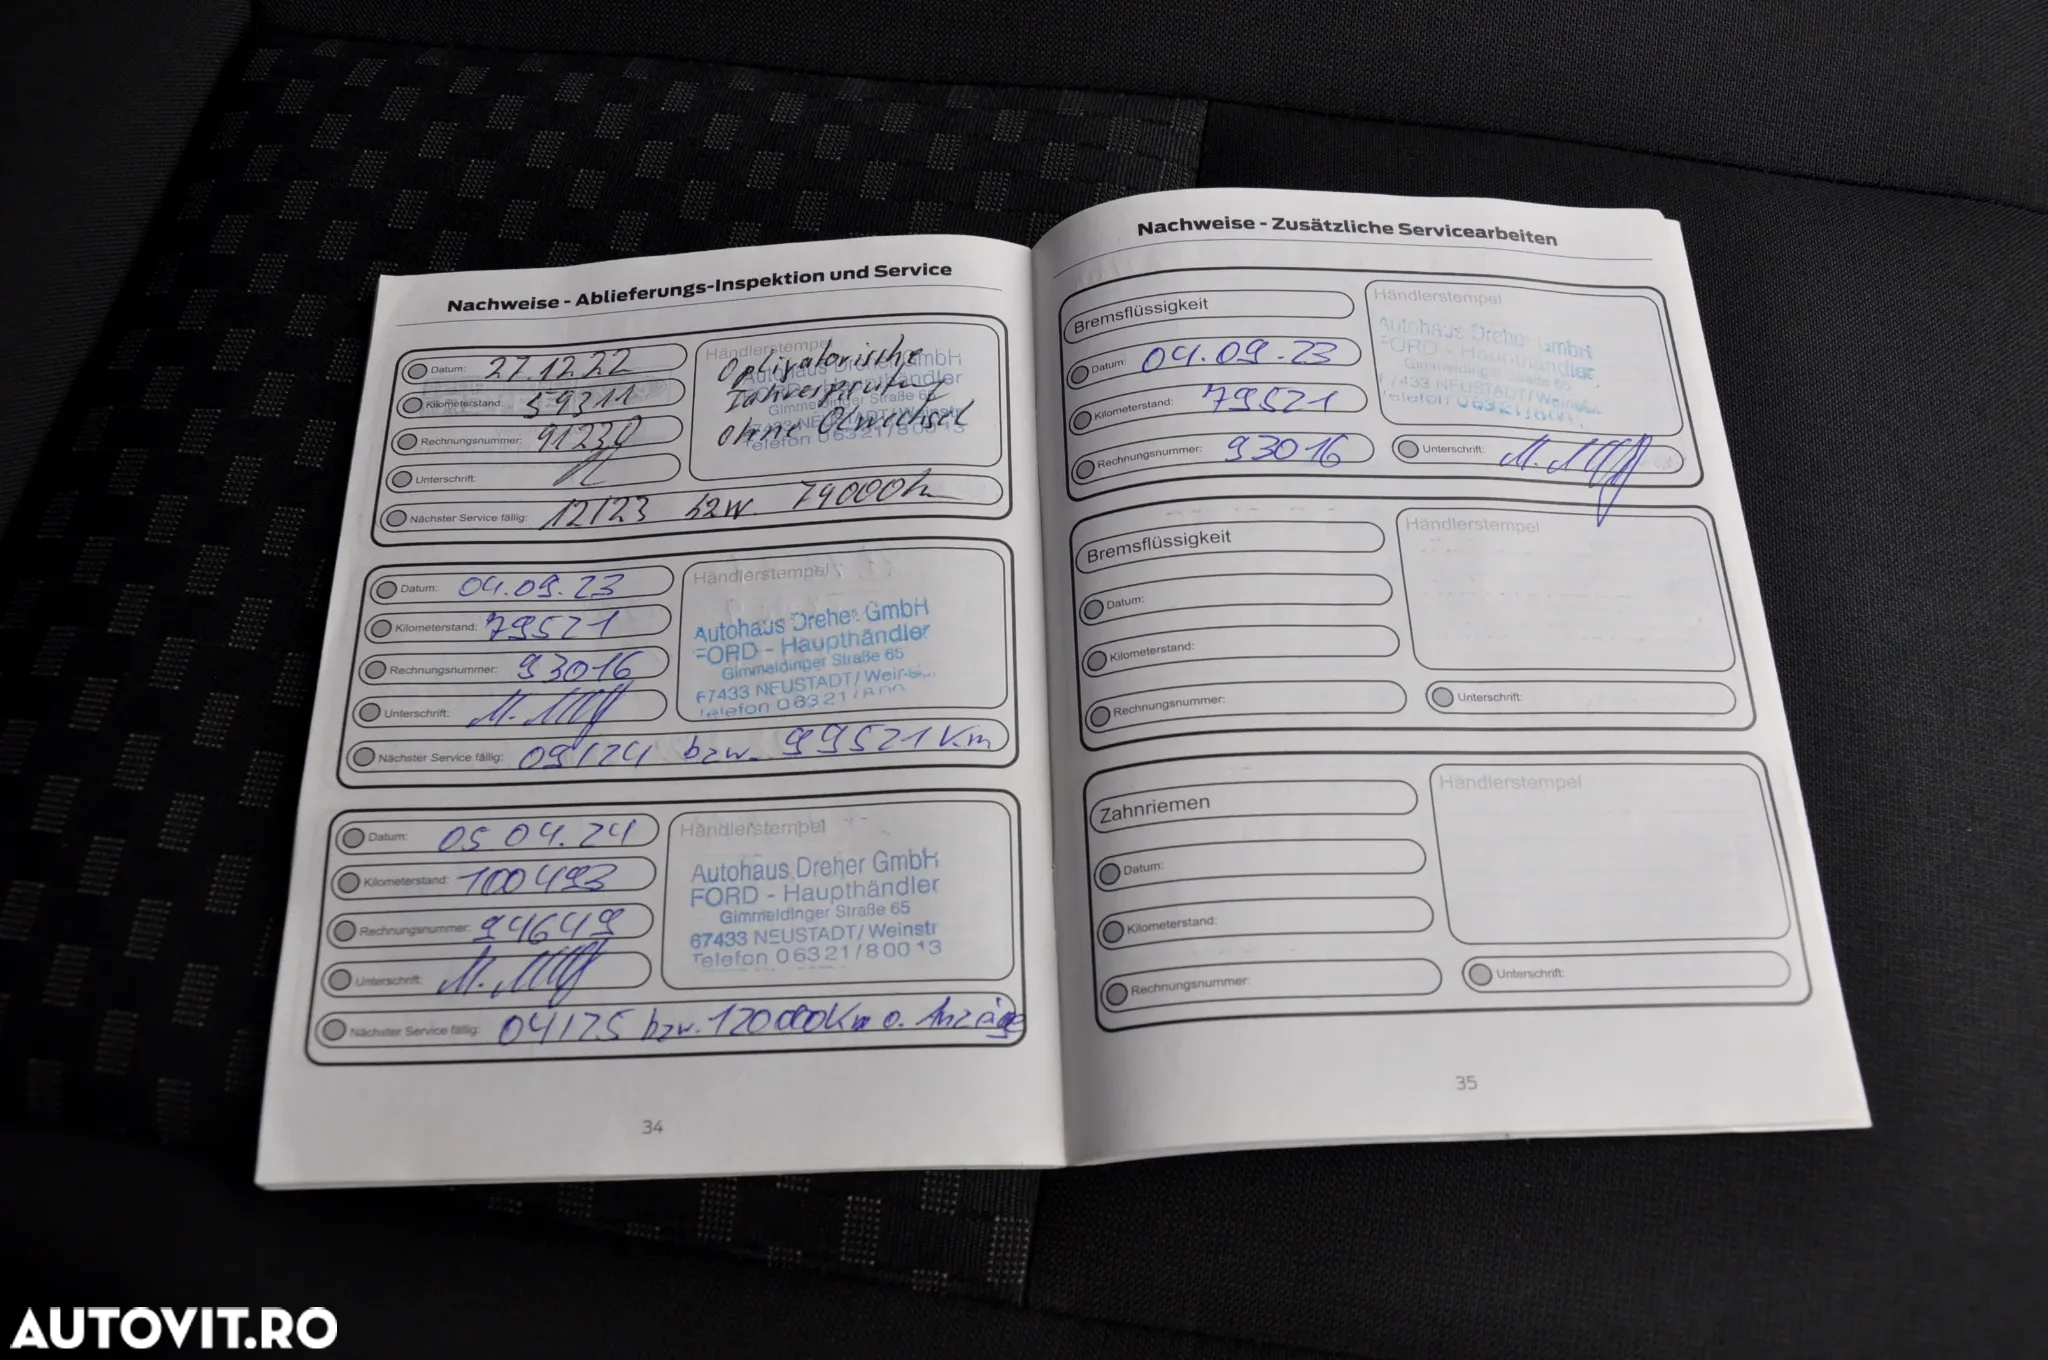 Nachweise - Ablieferungs-Inspektion und Service
Datum: 27.12.22
Kilometerstand: 59311
Rechnungsnummer: 91230
Unterschrift:
Nächster Service fällig: 12/23 bzw. 79000k
Händlerstempel
Opligatorische
Jahresprüfung
ohne Ölwechsel
GmbH
Gimmeldinger Straße 65
67433 NEUSTADT/Weinstr
Telefon 0 63 21 / 8 00 13
Datum: 04.09.23
Kilometerstand: 79521
Rechnungsnummer: 93016
Unterschrift:
Nächster Service fällig: 09/24 bzw. 99521 Km
Händlerstempel
Autohaus Dreher GmbH
FORD - Haupthändler
Gimmeldinger Straße 65
67433 NEUSTADT/Weinst
Telefon 0 63 21 / 8 00
Datum: 05.04.24
Kilometerstand: 100493
Rechnungsnummer: 94649
Unterschrift:
Nächster Service fällig: 04/25 bzw. 120000Km o. Anzeige
Händlerstempel
Autohaus Dreher GmbH
FORD - Haupthändler
Gimmeldinger Straße 65
67433 NEUSTADT/Weinstr
Telefon 0 63 21 / 8 00 13
34
Nachweise - Zusätzliche Servicearbeiten
Bremsflüssigkeit
Datum: 04.09.23
Kilometerstand: 79521
Rechnungsnummer: 93016
Händlerstempel
Autohaus Dreher GmbH
FORD - Haupthändler
Gimmeldinger Straße 65
67433 NEUSTADT/Weinst
Telefon 0 63 21 / 8 00
Unterschrift:
Bremsflüssigkeit
Datum:
Kilometerstand:
Rechnungsnummer:
Händlerstempel
Unterschrift:
Zahnriemen
Datum:
Kilometerstand:
Rechnungsnummer:
Händlerstempel
Unterschrift:
35
AUTOVIT.RO